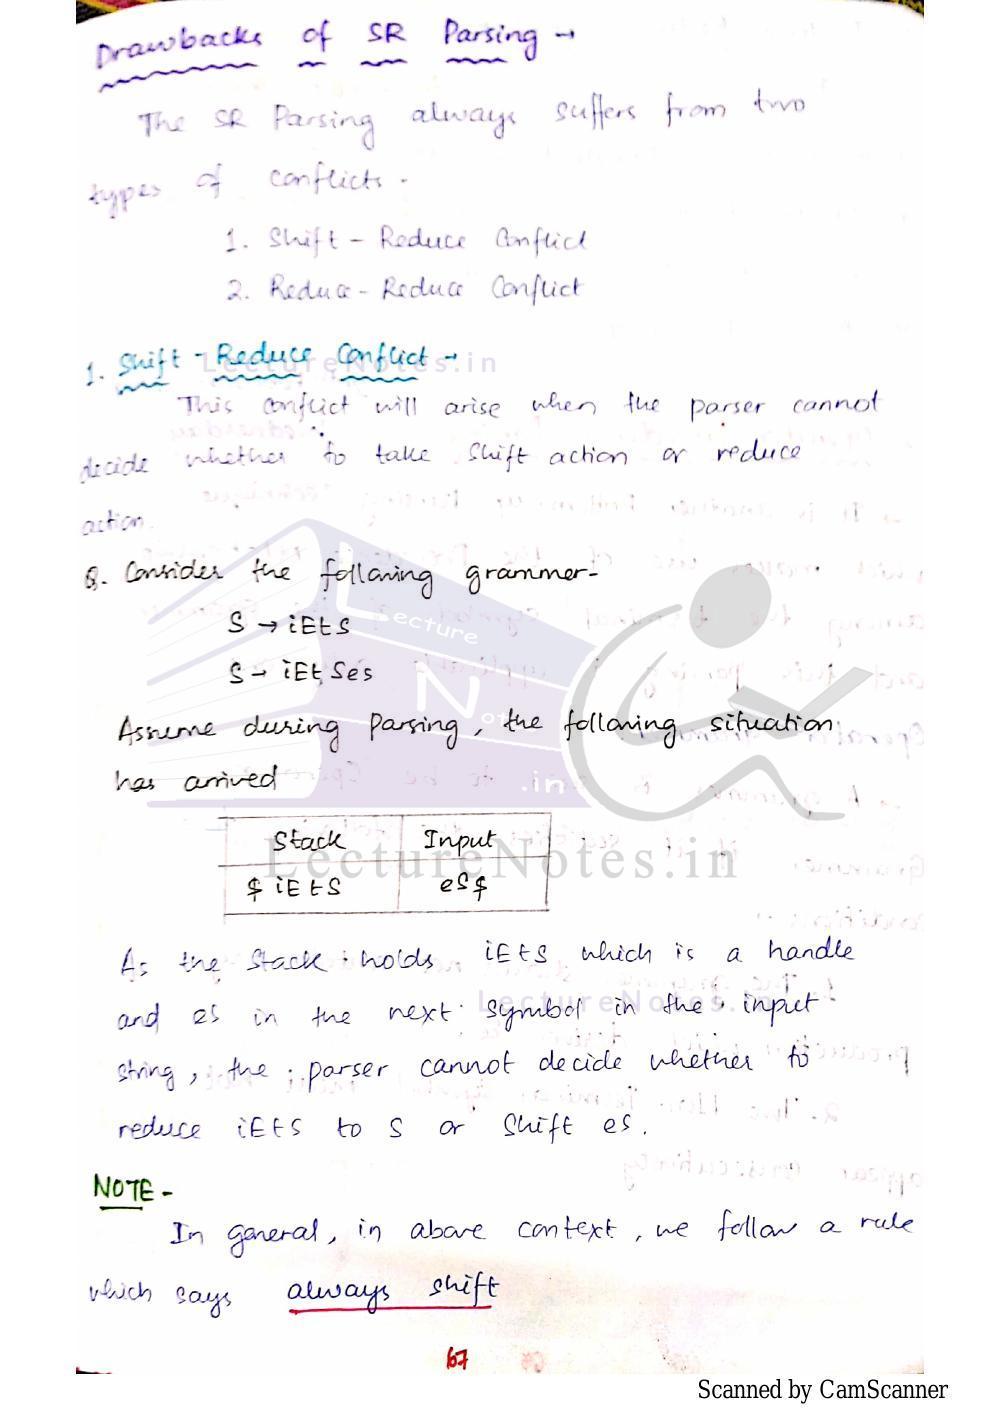 Drawbacks of SR Parsing →
The SR Parsing always suffers from two
types of conflicts.
1. Shift - Reduce Conflict
2. Reduce - Reduce Conflict
1. Shift - Reduce Conflict →
LectureNotes.in
This conflict will arise when the parser cannot
decide whether to take shift action or reduce
action.
Q. Consider the following grammer-
S → iEtS
S → iEtSes
Assume during parsing, the following situation
has arrived
Lecture
Notes
.in
Stack Input
$ iEtS eS$
LectureNotes.in
As the stack holds iEtS which is a handle
and es in the next symbol in the input
LectureNotes.in
string, the parser cannot decide whether to
reduce iEtS to S or shift es.
NOTE -
In general, in above context, we follow a rule
which says always shift
67
Scanned by CamScanner